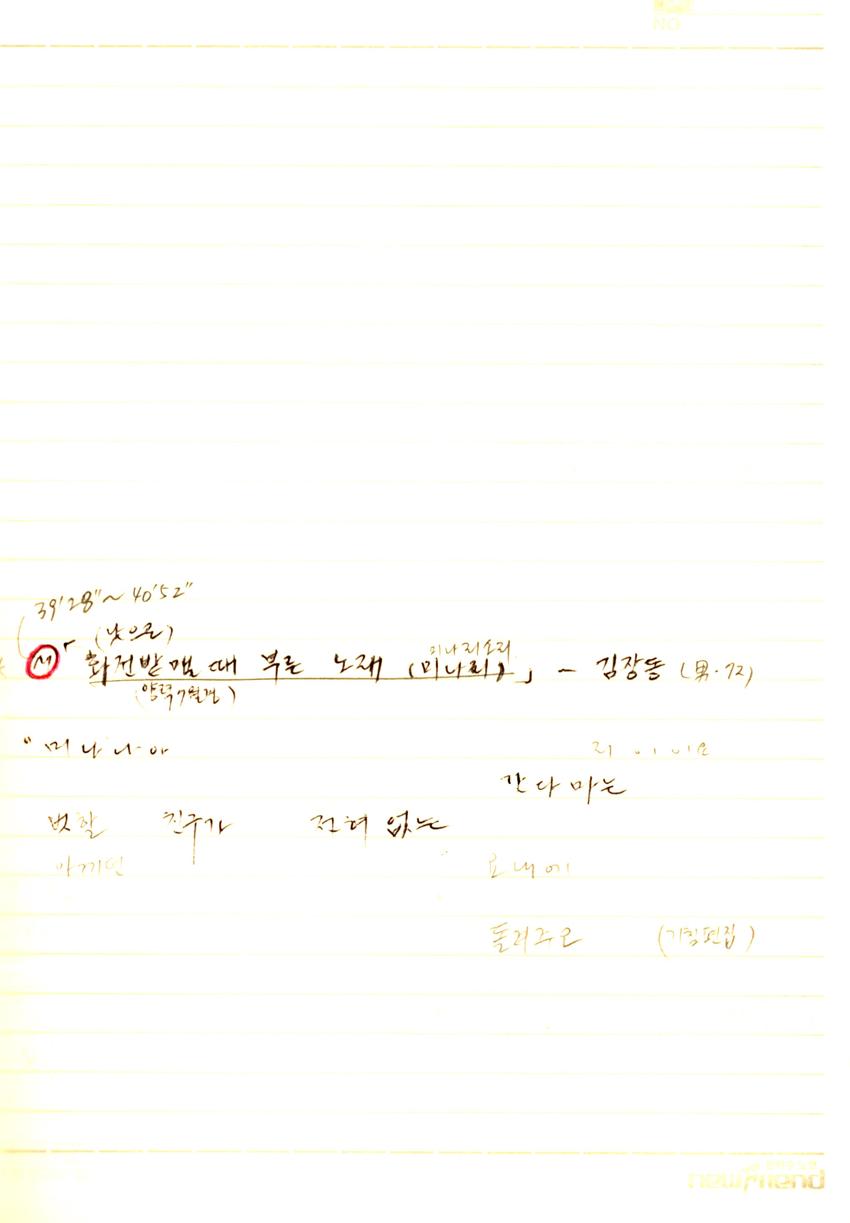 NO
39'28"~40'52"
(낫으로)
M 「화전밭 맬 때 부른 노래 (미나리)」 - 김장동 (男·72)
미나리소리
(양력7월경)
"미 나 나 아 리 이 이 요
간 다 마 는
벗할 친구가 전혀 없는
아까연 요 내 에
돌려주오 (기침편집)
newfriend